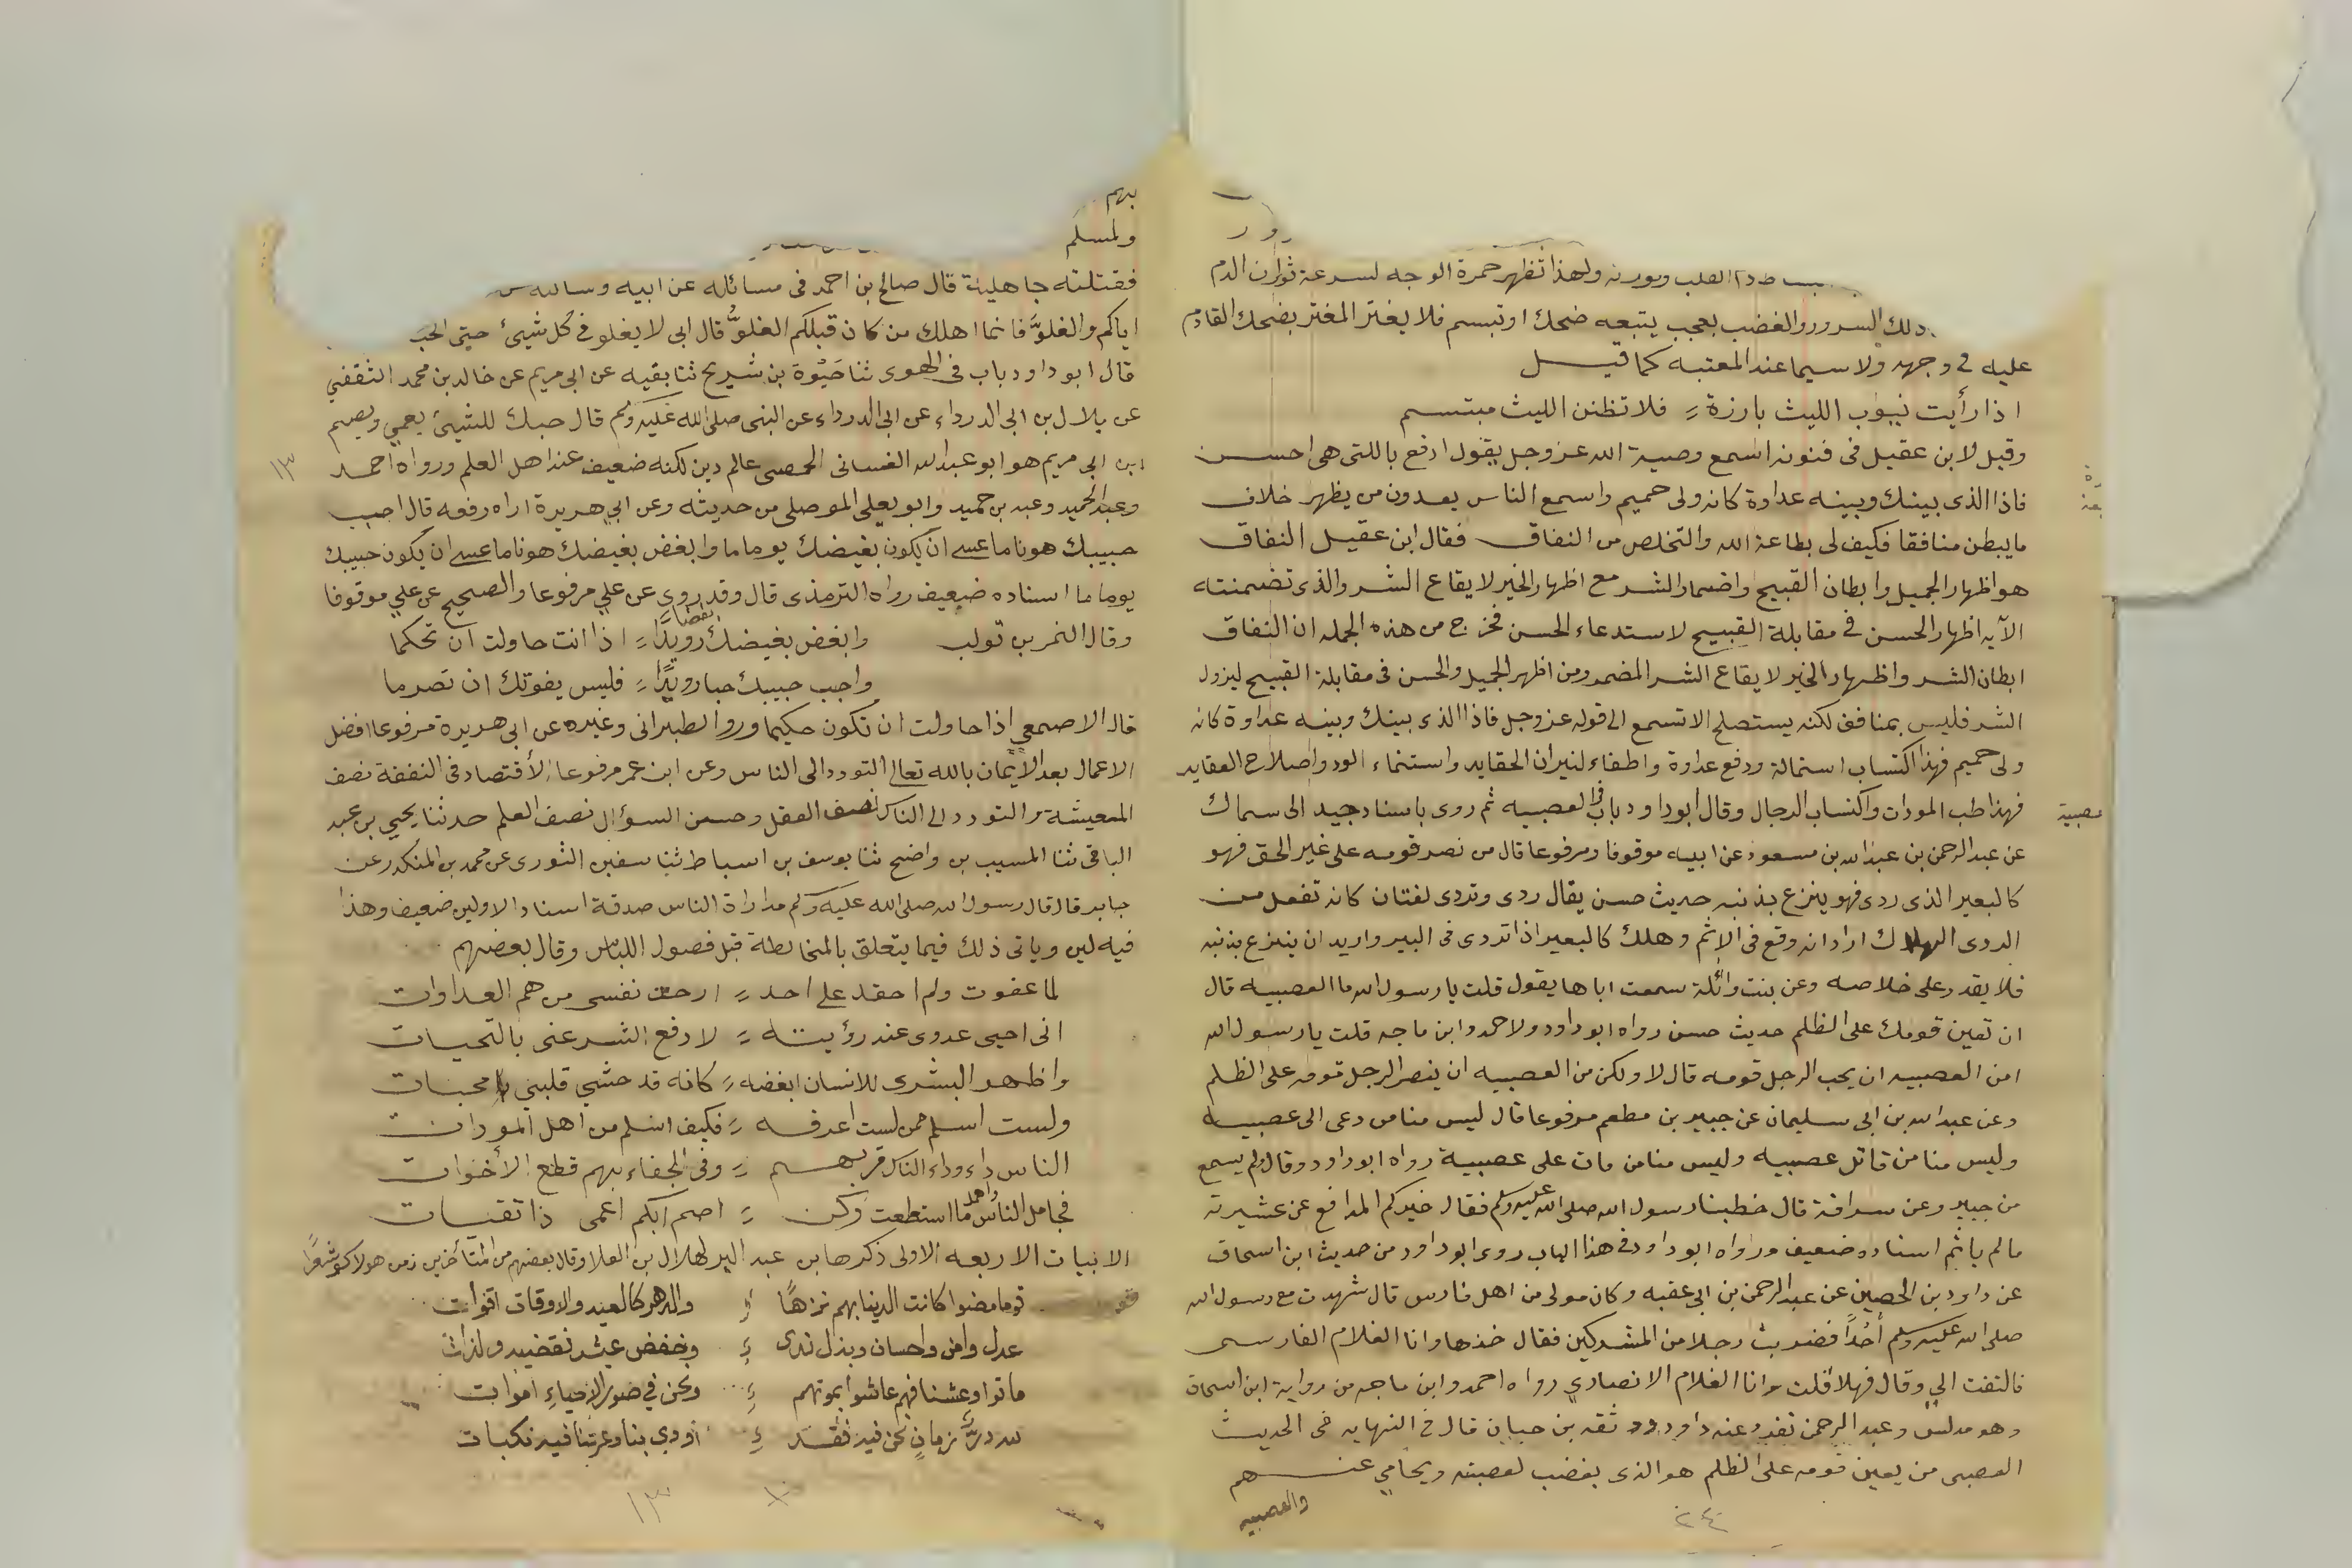 القلب ولهذا تظهر حمرة الوجه لسرعة ثوران الدم
ذلك السرور والغضب بعجب يتبعه ضحك او تبسم فلا يغتر المغتر بضحك القادم
عليه في وجهه ولا سيما عند المعتبه كما قيل
اذا رأيت نيوب الليث بارزة فلا تظنن الليث مبتسم
وقيل لابن عقيل في فنونه اسمع وصية الله عز وجل يقول ادفع باللتي هي احسن
فاذا الذي بينك وبينه عداوة كانه ولي حميم واسمع الناس يعدون من يظهر خلاف
ما يبطن منافقا فكيف لي بطاعة الله والتخلص من النفاق فقال ابن عقيل النفاق
هو اظهار الجميل وابطان القبيح واضمار الشر مع اظهار الخير لايقاع الشر والذي تضمنته
الآيه اظهار الحسن في مقابلة القبيح لاستدعاء الحسن فخرج من هذه الجمله ان النفاق
ابطان الشر واظهار الخير لايقاع الشر المضمر ومن اظهر الجميل والحسن في مقابلة القبيح ليزول
الشر فليس بمنافق لكنه يستصلح الا تسمع الى قوله عز وجل فاذا الذي بينك وبينه عداوة كانه
ولي حميم فهذا اكتساب استمالة ودفع عداوة واطفاء لنيران الحقايد واستنماء الود واصلاح العقايد
فهذا طب المودات واكتساب الرجال وقال ابو داود باب في العصبيه ثم روى باسناد جيد الى سماك
عصبية
عن عبد الرحمن بن عبد الله بن مسعود عن ابيه موقوفا ومرفوعا قال من نصر قومه على غير الحق فهو
كالبعير الذي ردى فهو ينزع بذنبه حديث حسن يقال ردى وتردى لغتان كانه تفعل من
الردى الهلاك اراد انه وقع في الاثم وهلك كالبعير اذا تردى في البير واريد ان ينزع بذنبه
فلا يقدر على خلاصه وعن بنت واثلة سمعت اباها يقول قلت يا رسول الله ما العصبيه قال
ان تعين قومك على الظلم حديث حسن رواه ابو داود ولاحمد وابن ماجه قلت يا رسول الله
امن العصبيه ان يحب الرجل قومه قال لا ولكن من العصبيه ان ينصر الرجل قومه على الظلم
وعن عبد الله بن ابي سليمان عن جبير بن مطعم مرفوعا قال ليس منا من دعى الى عصبيه
وليس منا من قاتل عصبيه وليس منا من مات على عصبية رواه ابو داود وقال لم يسمع
من جبير وعن سراقة قال خطبنا رسول الله صلى الله عليه وسلم فقال خيركم المدافع عن عشيرته
ما لم ياثم اسناده ضعيف ورواه ابو داود في هذا الباب روى ابو داود من حديث ابن اسحاق
عن داود بن الحصين عن عبد الرحمن بن ابي عقبه وكان مولى من اهل فارس قال شهدت مع رسول الله
صلى الله عليه وسلم أُحُداً فضربت رجلا من المشركين فقال خذها وانا الغلام الفارسي
فالتفت الي وقال فهلا قلت وانا الغلام الانصاري رواه احمد وابن ماجه من رواية ابن اسحاق
وهو مدلس وعبد الرحمن تفرد عنه داود ثقه بن حبان قال في النهايه في الحديث
العصبي من يعين قومه على الظلم هو الذي يغضب لعصبته ويحامي عنهم
والعصبيه
٢٤
بهم
ولمسلم
فقتلته جاهلية قال صالح بن احمد في مسائله عن ابيه وسالته عن
اياكم والغلوَّ فانما اهلك من كان قبلكم الغلوُّ قال ابي لا يغلو في كل شيئ حتى الحب
قال ابو داود باب في الهوى ثنا حَيْوة بن شريح ثنا بقيه عن ابي مريم عن خالد بن محمد الثقفي
عن بلال بن ابي الدرداء عن ابي الدرداء عن النبي صلى الله عليه وسلم قال حبك للشيئ يعمي ويصم
١٣
ابن ابي مريم هو ابو عبد الله الغساني الحمصي عالم دين لكنه ضعيف عند اهل العلم ورواه احمد
وعبد الحميد وعبد بن حميد وابو يعلى الموصلي من حديثه وعن ابي هريرة اراه رفعه قال احبب
حبيبك هونا ما عسى ان يكون بغيضك يوما ما وابغض بغيضك هونا ما عسى ان يكون حبيبك
يوما ما اسناده ضعيف رواه الترمذي قال وقد روى عن علي مرفوعا والصحيح عن علي موقوفا
وقال النمر بن تولب وابغض بغيضك بغضا رويدًا اذا انت حاولت ان تحكما
واحبب حبيبك حبا رويدًا فليس يفوتك ان تصرما
قال الاصمعي اذا حاولت ان تكون حكيما وروا الطبراني وغيره عن ابي هريرة مرفوعا افضل
الاعمال بعد الايمان بالله تعالى التودد الى الناس وعن ابن عمر مرفوعا الاقتصاد في النفقة نصف
المعيشة والتودد الى الناس نصف العقل وحسن السؤال نصف العلم حدثنا يحيى بن عبد
الباقي ثنا المسيب بن واضح ثنا يوسف بن اسباط ثنا سفين الثوري عن محمد بن المنكدر عن
جابر قال قال رسول الله صلى الله عليه وسلم مداراة الناس صدقة اسناد الاولين ضعيف وهذا
فيه لين وياتي ذلك فيما يتعلق بالمخالطة قبل فصول اللباس وقال بعضهم
لما عفوت ولم احقد على احد ارحت نفسي من هم العداوات
اني احيي عدوي عند رؤيته لادفع الشر عني بالتحيات
واظهر البشرى للانسان ابغضه كانه قد حشي قلبي محبات
ولست اسلم ممن لست اعرفه فكيف اسلم من اهل المودات
الناس داء وداء الناس قربهم وفي الجفاء بهم قطع الأخوات
فجامل الناس واجمل ما استطعت وكن اصم ابكم اعمى ذا تقيات
الابيات الاربعه الاولى ذكرها بن عبد البر لهلال بن العلا وقال بعضهم من المتأخرين زمن هولاكو شعرًا
قوما مضوا كانت الدنيا بهم نزهًا والدهر كالعيد والاوقات اقوات
عدل وامن واحسان وبذل ندى وخفض عيش نقضيه ولذات
ماتوا وعشنا فهم عاشوا بموتهم ونحن في صور الاحياءِ اموات
لله درُّ زمانٍ نحن فيه فقد أودى بنا وعرتنا فيه نكبات
١٣